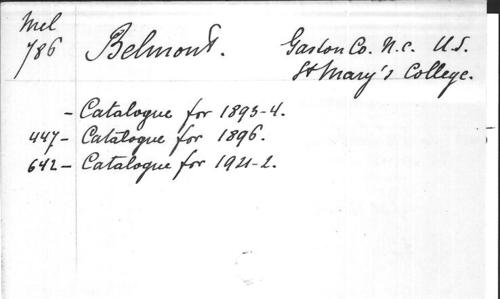 Mel
786
Belmont. Gaston Co. N.C. U.S.
St Mary's College.
- Catalogue for 1893-4.
447- Catalogue for 1896.
642- Catalogue for 1921-2.